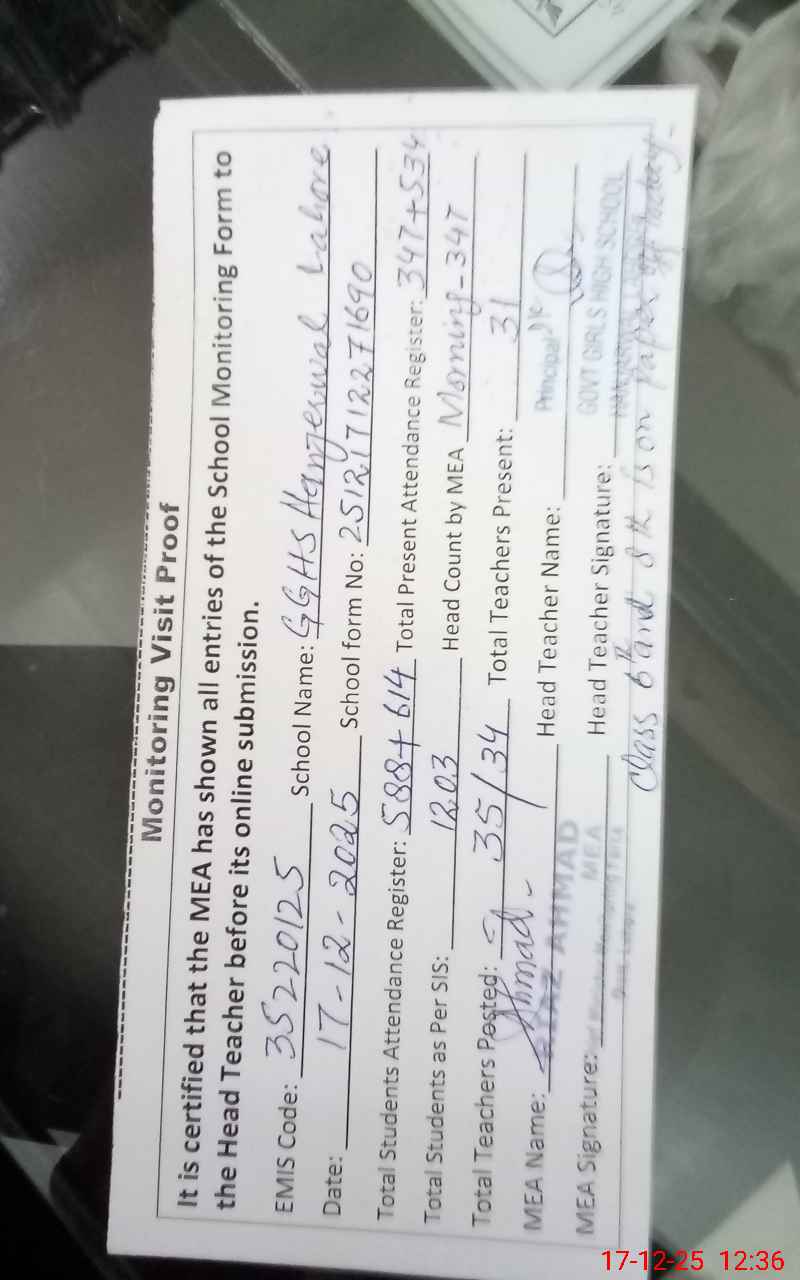 Monitoring Visit Proof
It is certified that the MEA has shown all entries of the School Monitoring Form to
the Head Teacher before its online submission.
EMIS Code: 35220125 School Name: GGHS Hanjerwal Lahore
Date: 17-12-2025 School form No: 251217122271690
Total Students Attendance Register: 588+614 Total Present Attendance Register: 347+534
Total Students as Per SIS: 1203 Head Count by MEA Morning-347
Total Teachers Posted: 35/34 Total Teachers Present: 31
MEA Name: Ahmad Head Teacher Name: Principal
AHMAD
MEA Signature: MEA Head Teacher Signature: GOVT GIRLS HIGH SCHOOL
Class 6th and 8th is on paper off today
17-12-25 12:36